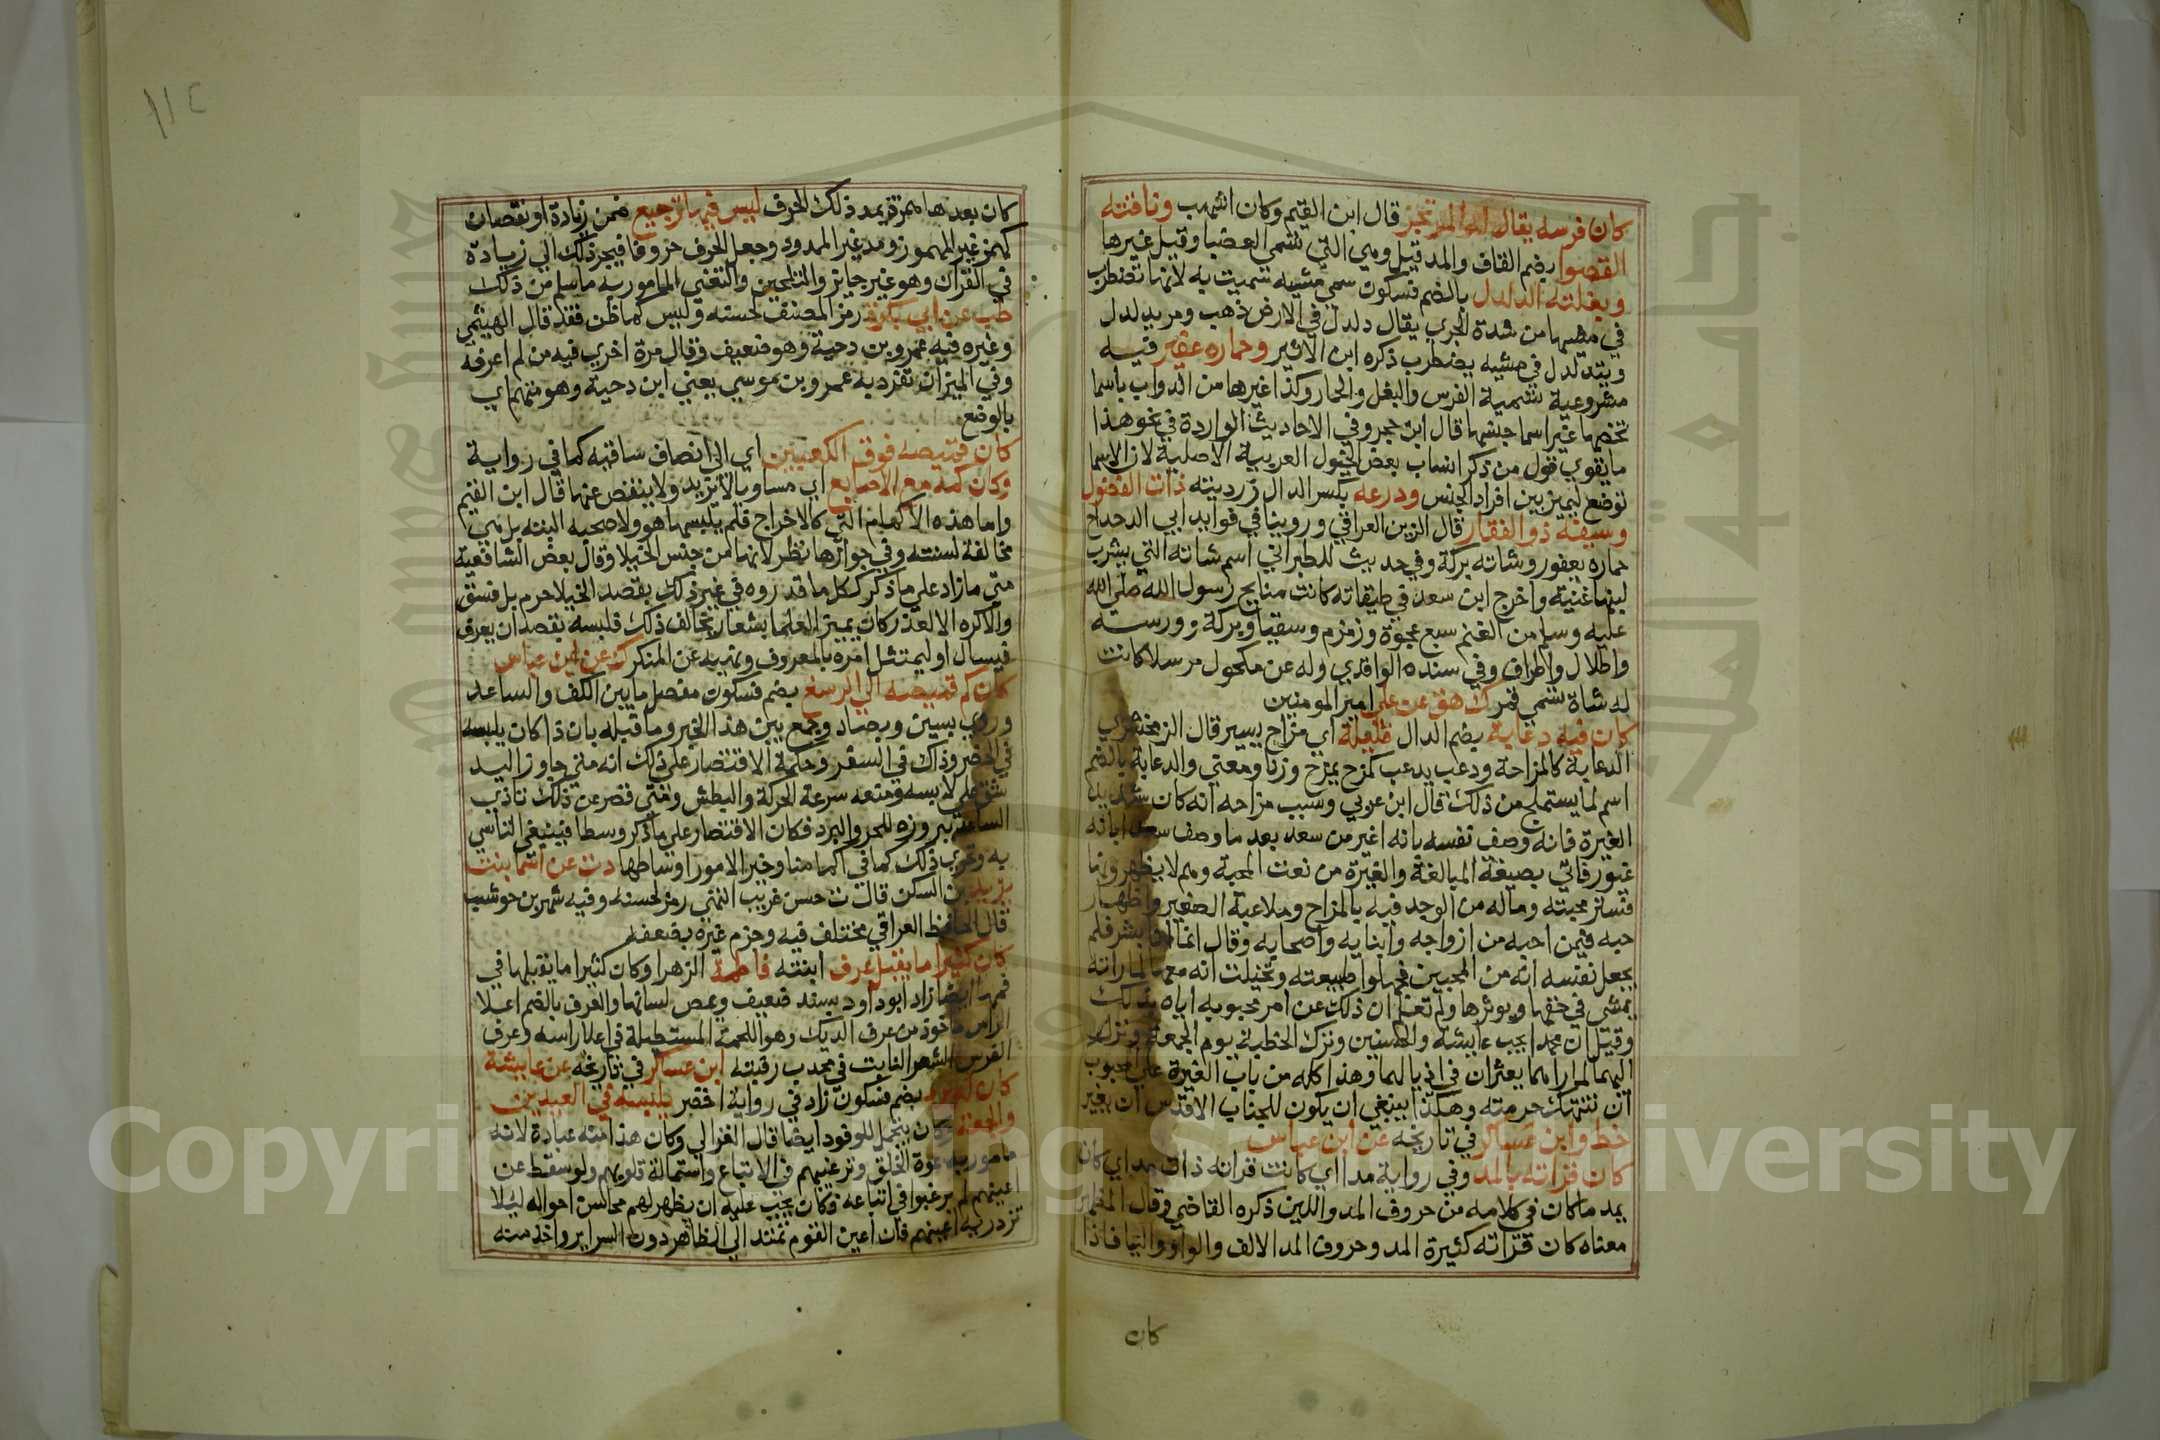 كان فرسه يقال له المرتجز قال ابن القيم وكان اشهب وناقته
القصوا بضم القاف والمد قيل وهي التي تسمى العضبا وقيل غيرها
وبغلته الدلدل بالضم فسكون سمي مشيه سميت به لانها تضطرب
في مشيها من شدة الجري يقال دلدل في الارض ذهب ومر يدلدل
ويتدلدل في مشيه يضطرب ذكره ابن الاثير وحماره عفير فيه
مشروعية تسمية الفرس والبغل والحمار وكذا غيرها من الدواب باسما
تخصها غير اسما جنسها قال ابن حجر وفي الاحاديث الواردة في نحو هذا
ما يقوي قول من ذكر انساب بعض الخيول العربية الاصلية لان الاسما
توضع لتميز بين افراد الجنس ودرعه بكسر الدال زرديته ذات الفضول
وسيفه ذو الفقار قال الزين العراقي وروينا في فوايد ابي الدحداح
حماره يعفور وشاته بركة وفي حديث للطبراني اسم شاته التي يشرب
لبنها غنية واخرج ابن سعد في طبقاته كانت منايح رسول الله صلى الله
عليه وسلم من الغنم سبع عجوة وزمزم وسقيا وبركة وورسة
واطلال واطراف وفي سنده الواقدي وله عن مكحول مرسلا كانت
له شاة تسمى قمر ك هق عن علي امير المومنين
كان فيه دعابة بضم الدال قليلة اي مزاح يسير قال الزمخشري
الدعابة كالمزاحة ودعب يدعب كمزح يمزح وزنا ومعنى والدعابة بالضم
اسم لما يستملح من ذلك قال ابن عربي وسبب مزاحه انه كان شديد
الغيرة فانه وصف نفسه بانه اغير من سعد بعد ما وصف سعدا بانه
غيور فاتي بصيغة المبالغة والغيرة من نعت المحبة وهم لا يظهرونها
فستر محبته وماله من الوجد فيه بالمزاح وملاعبة الصغير واظهار
حبه فيمن احبه من ازواجه وابنايه واصحابه وقال انما انا بشر فلم
يجعل نفسه انه من المحبين فجهلوا طبيعته وتخيلت انه معها لما راته
يمشي في حقها ويوثرها ولم تعلم ان ذلك عن امر محبوبه اياه بذلك
وقيل ان محمدا يحب عايشة والحسنين وترك الخطبة يوم الجمعة ونزل
اليهما لما راهما يعثران في اذيالهما وهذا كله من باب الغيرة على المحبوب
ان تنتهك حرمته وهكذا ينبغي ان يكون للجناب الاقدس ان يغير
خط وابن عساكر في تاريخه عن ابن عباس
كان قراته بالمد وفي رواية مدا اي كانت قراته ذات مد اي كان
يمد ما كان في كلامه من حروف المد واللين ذكره القاضي وقال المظهر
معناه كان قراته كثيرة المد وحروف المد الالف والواو واليا فاذا
كان
١١٢
كان بعدها همزة يمد ذلك الحرف ليس فيها ترجيع فمن زيادة او نقصان
كهمز غير المهموز ومد غير الممدود وجعل الحرف حروفا فيجر ذلك الي زيادة
في القران وهو غير جايز والتلحين والتغني المامور به ما سلم من ذلك
طب عن ابي بكرة رمز المصنف لحسنه وليس كما ظن فقد قال الهيثمي
وغيره فيه عمرو بن دحية وهو ضعيف وقال مرة اخرى فيه من لم اعرفه
وفي الميزان تفرد به عمرو بن موسى يعني ابن دحية وهو متهم اي
بالوضع
كان قميصه فوق الكعبين اي الى انصاف ساقيه كما في رواية
وكان كمه مع الاصابع اي مساويا لا تزيد ولا ينقص عنها قال ابن القيم
واما هذه الاكمام التي كالاخراج فلم يلبسها هو ولا صحبه البته بل هي
مخالفة لسنته وفي جوازها نظر لانها من جنس الخيلا وقال بعض الشافعية
متى ما زاد على ما ذكر ككل ما قدروه في غير ذلك بقصد الخيلا حرم بل فسق
والا كره الا لعذر كان يميز العلما بشعار يخالف ذلك فلبسه بقصد ان يعرف
فيسال او ليمتثل امره بالمعروف ونهيه عن المنكر ك عن ابن عباس
كان كم قميصه الي الرسغ بضم فسكون مفصل ما بين الكف والساعد
وروي بسين وبصاد وجمع بين هذا الخبر وما قبله بان ذا كان يلبسه
في الحضر وذاك في السفر وحكمة الاقتصار على ذلك انه متى جاوز اليد
شق على لابسه ومنعه سرعة الحركة والبطش ومتى قصر عن ذلك تاذى
الساعد ببروزه للحر والبرد فكان الاقتصار على ما ذكر وسطا فينبغي التاسي
به وتحري ذلك كما في اكمامنا وخير الامور اوساطها د ت عن اسما بنت
يزيد بن السكن قال ت حسن غريب انتهى رمز لحسنه وفيه شهر بن حوشب
قال الحافظ العراقي مختلف فيه وجزم غيره بضعفه
كان كثيرا ما يقبل عرف ابنته فاطمة الزهرا وكان كثيرا ما يقبلها في
فمها ايضا زاد ابو داود بسند ضعيف ويمص لسانها والعرف بالضم اعلا
الراس ماخوذ من عرف الديك وهو اللحمة المستطيلة في اعلا راسه وعرف
الفرس الشعر النابت في محدب رقبته ابن عساكر في تاريخه عن عايشة
كان له برد بضم فسكون زاد في رواية اخضر يلبسه في العيدين
والجمعة وكان يتجمل للوفود ايضا قال الغزالي وكان هذا منه عبادة لانه
مامور بدعوة الخلق وترغيبهم في الاتباع واستمالة قلوبهم ولو سقط عن
اعينهم لم يرغبوا في اتباعه فكان يجب عليه ان يظهر لهم محاسن احواله ليلا
تزدريه اعينهم فان اعين القوم تمتد الي الظاهر دون السراير واخذ منه